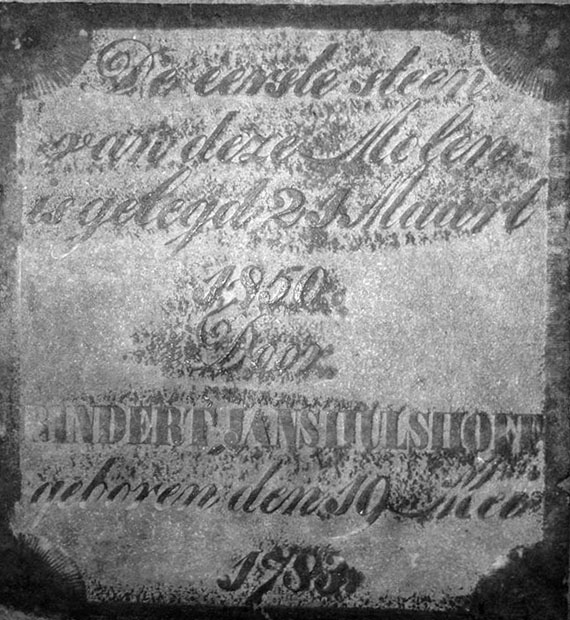 De eerste steen
van deze Molen
is gelegd 21 Maart
1850.
Door
RINDERT JANS HULSHOFF
geboren den 10 Mei
1783.